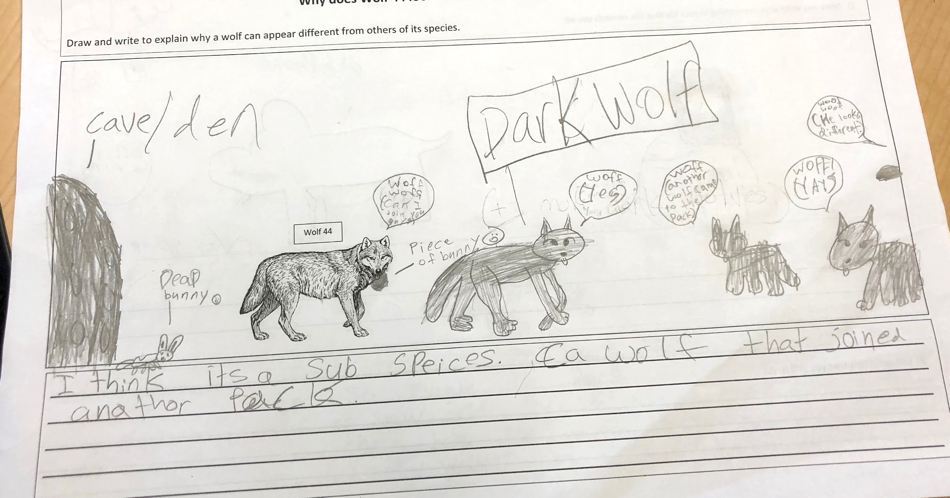 Why does Wolf 44
Draw and write to explain why a wolf can appear different from others of its species.
cave/den
Dark Wolf
woof
woof
(He looks
different)
Woff
woff
(Can I
join you
Wolf 44
woff
(Yes)
woff
(another
wolf came
to the
Pack)
WOFF!
(YAY)
Piece
of bunny
Dead
bunny
I think its a Sub Speices. Ea wolf that joined
anathor Pack.